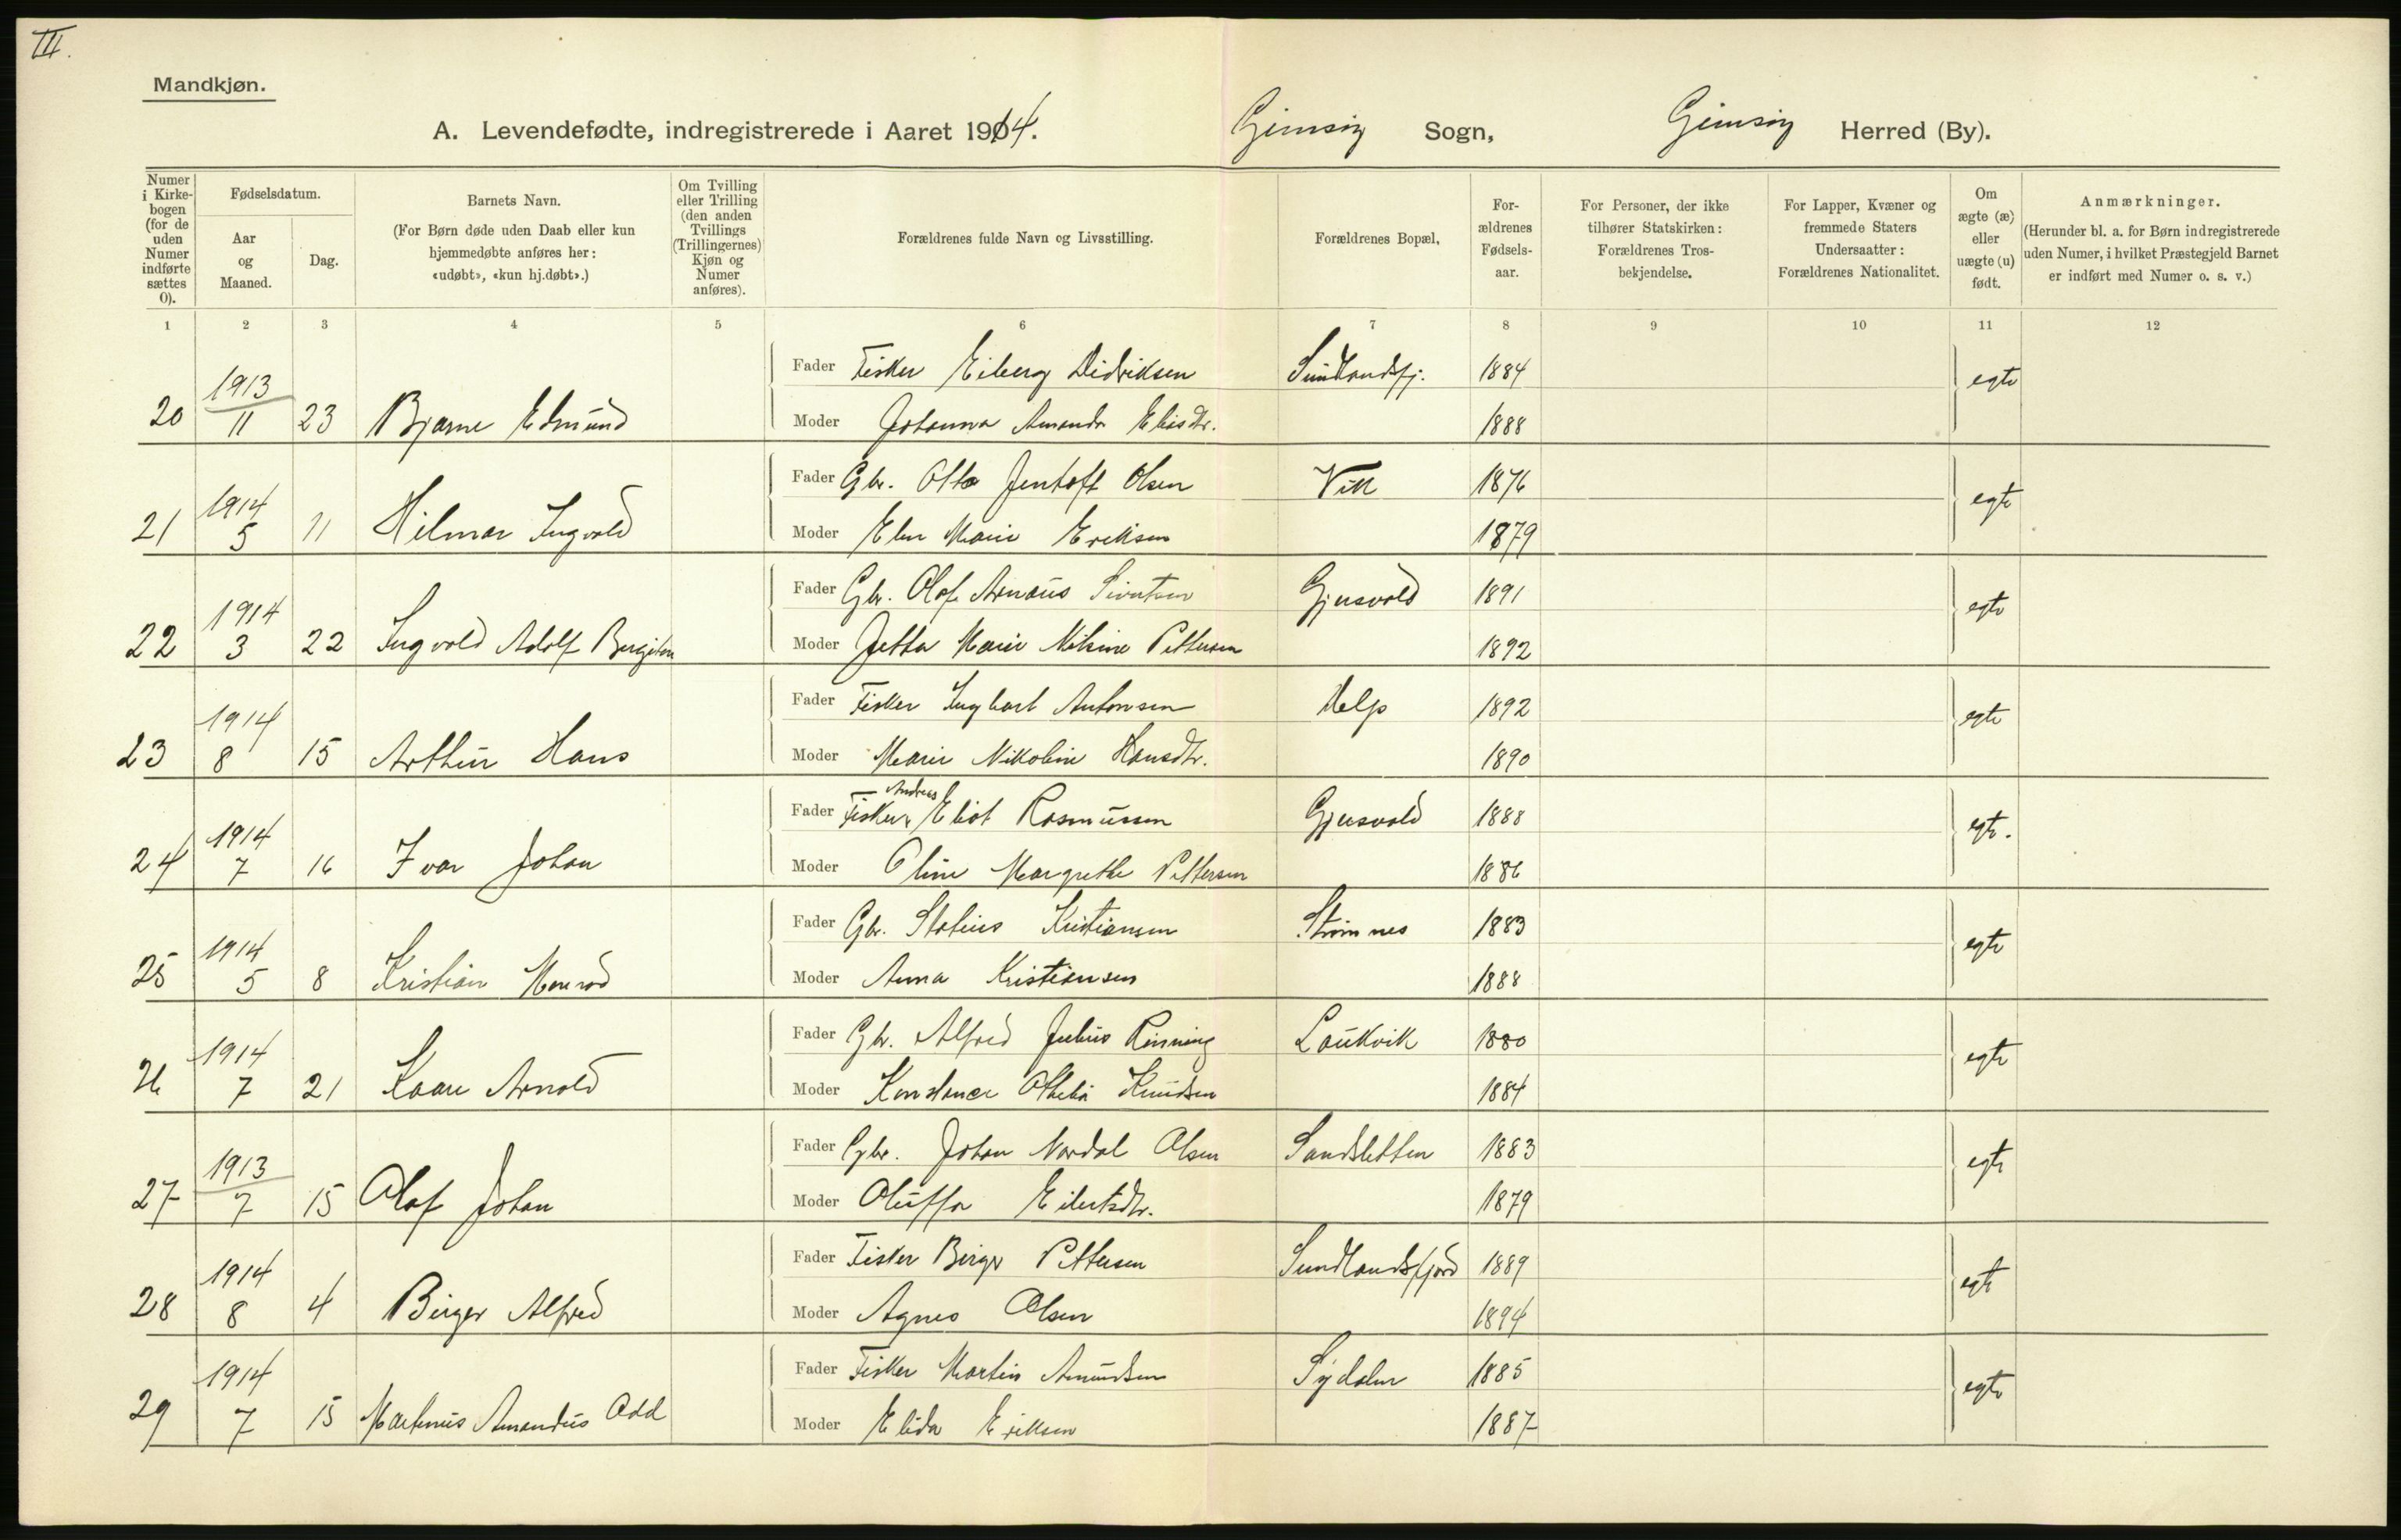 III.
Mandkjøn.
A. Levendefødte, indregistrerede i Aaret 1914. Gimsøy Sogn, Gimsøy Herred (By).
Numer i Kirkebogen (for de uden Numer indførte sættes 0).
Fødselsdatum.
Aar og Maaned.
Dag.
Barnets Navn.
(For Børn døde uden Daab eller kun hjemmedøbte anføres her: «udøbt», «kun hj.døbt».)
Om Tvilling eller Trilling (den anden Tvillings (Trillingernes) Kjøn og Numer anføres).
Forældrenes fulde Navn og Livsstilling.
Forældrenes Bopæl.
Forældrenes Fødselsaar.
For Personer, der ikke tilhører Statskirken: Forældrenes Trosbekjendelse.
For Lapper, Kvæner og fremmede Staters Undersaatter: Forældrenes Nationalitet.
Om ægte (æ) eller uægte (u) født.
Anmærkninger.
(Herunder bl. a. for Børn indregistrerede uden Numer, i hvilket Præstegjeld Barnet er indført med Numer o. s. v.)
1 2 3 4 5 6 7 8 9 10 11 12
20 1913 11 23 Bjarne Edmund Fader Fisker Eiberg Didriksen Sundlandsfj. 1884 egte
Moder Johanna Amanda Eliasdtr. 1888
21 1914 5 11 Hilmar Ingvald Fader Gbr. Otto Jentoft Olsen Vik 1876 egte
Moder Elen Marie Eriksen 1879
22 1914 3 22 Ingvald Adolf Bergiton Fader Gbr. Olaf Arnäus Sivertsen Gjusvold 1891 egte
Moder Jetta Marie Nilsine Pettersen 1892
23 1914 8 15 Arthur Hans Fader Fisker Ingbart Antonsen Helgo 1892 egte
Moder Marie Nikoline Hansdtr. 1890
24 1914 7 16 Ivar Johan Fader Fisker Andreas Eliot Rasmussen Gjusvold 1888 egte.
Moder Oline Margrethe Pettersen 1886
25 1914 5 8 Kristian Konrad Fader Gbr. Statius Kristiansen Strømnes 1883 egte
Moder Anna Kristiansen 1888
26 1914 7 21 Kaare Arnold Fader Gbr. Alfred Julius Rinning Laukvik 1880 egte
Moder Konstance Othelia Knudsen 1884
27 1913 7 15 Olaf Johan Fader Gbr. Johan Nordal Olsen Sandsletten 1883 egte
Moder Oluffa Eilertsdtr. 1879
28 1914 8 4 Birger Alfred Fader Fisker Birger Pettersen Sundlandsfjord 1889 egte
Moder Agnes Olsen 1894
29 1914 7 15 Martinus Amandus Odd Fader Fisker Martin Amundsen Sydalen 1885 egte
Moder Elida Eriksen 1887